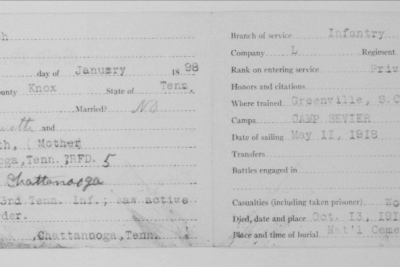 day of January 1898
County Knox State of Tenn.
Married? No
and
(Mother)
Tenn. RFD. 5
Chattanooga
3rd Tenn. Inf.; saw active
Chattanooga, Tenn.
Branch of service Infantry
Company L Regiment
Rank on entering service Priv
Honors and citations
Where trained Greenville, S.C
Camps CAMP SEVIER
Date of sailing May 11, 1918
Transfers
Battles engaged in
Casualties (including taken prisoner)
Died, date and place Oct. 13, 191
Place and time of burial Nat'l Ceme